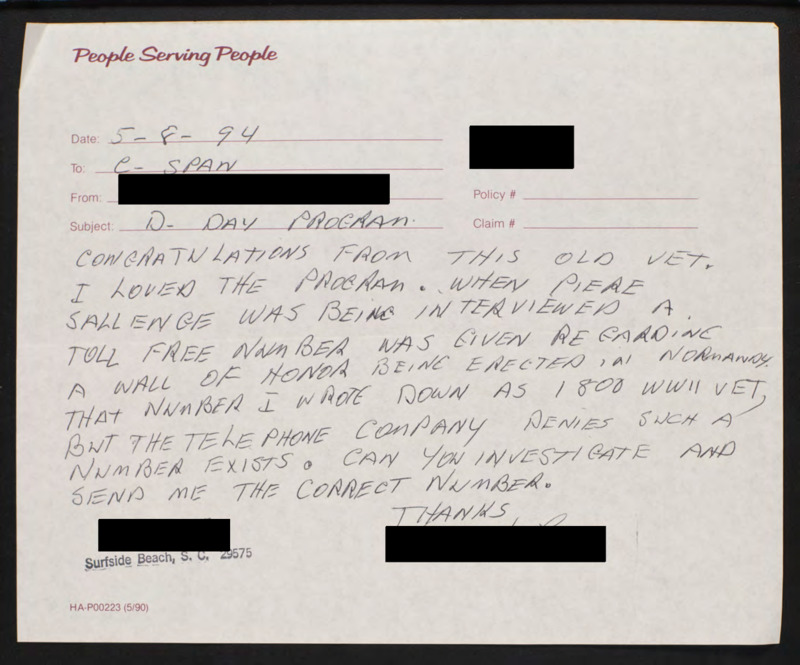 People Serving People
Date: 5-8-94
To: C-SPAN
From:
Policy #
Subject: D-DAY PROGRAM.
Claim #
CONGRATULATIONS FROM THIS OLD VET.
I LOVED THE PROGRAM. WHEN PIERE
SALLENGE WAS BEING INTERVIEWED A
TOLL FREE NUMBER WAS GIVEN REGARDING
A WALL OF HONOR BEING ERECTED IN NORMANDY.
THAT NUMBER I WROTE DOWN AS 1 800 WWII VET,
BUT THE TELEPHONE COMPANY DENIES SUCH A
NUMBER EXISTS. CAN YOU INVESTIGATE AND
SEND ME THE CORRECT NUMBER.
THANKS
Surfside Beach, S. C. 29575
HA-P00223 (5/90)